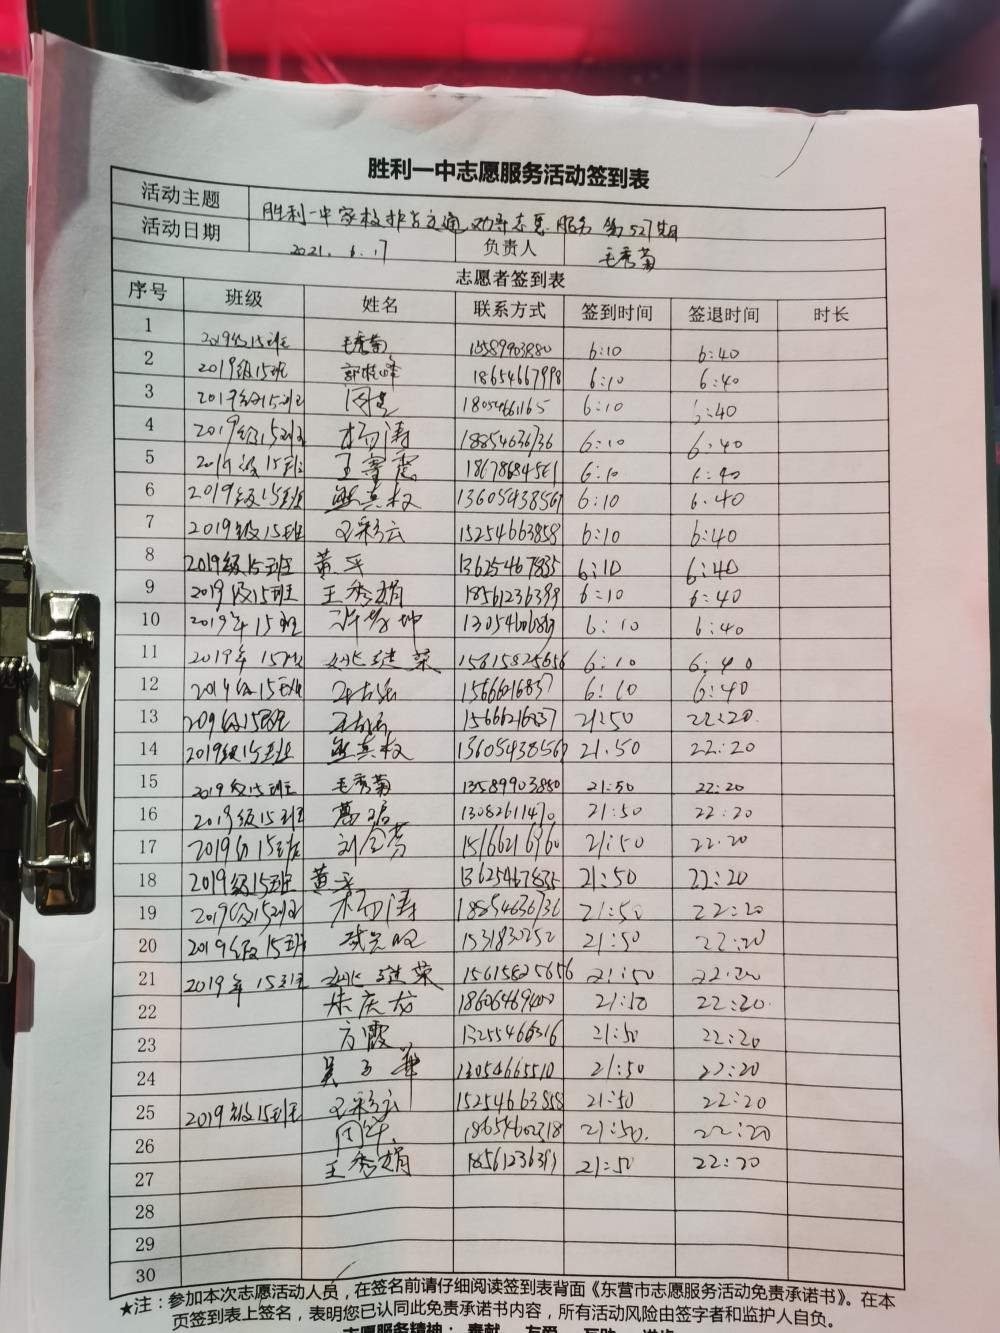 胜利一中志愿服务活动签到表
活动主题 胜利一中家校护占交通劝导志愿服务 第527期
活动日期 2021.6.17 负责人 毛秀菊
志愿者签到表
序号 班级 姓名 联系方式 签到时间 签退时间 时长
1 2019级15班 毛秀菊 6:10 6:40
2 2019级15班 18654667998 6:10 6:40
3 2019级15班 18054661165 6:10 6:40
4 2019级15班 杨涛 18854636736 6:10 6:40
5 2019级15班 6:10 6:40
6 2019级15班 熊英权 13605438567 6:10 6:40
7 2019级15班 王彩云 15254663858 6:10 6:40
8 2019级15班 黄平 13625467835 6:10 6:40
9 2019级15班 王秀娟 18561236399 6:10 6:40
10 2019年15班 6:10 6:40
11 2019年15班 姚建荣 15615825656 6:10 6:40
12 2019级15班 6:10 6:40
13 2019级15班 21:50 22:20
14 2019级15班 熊英权 13605438567 21:50 22:20
15 2019级15班 毛秀菊 13589903880 21:50 22:20
16 2019级15班 13082611470 21:50 22:20
17 2019级15班 21:50 22:20
18 2019级15班 黄平 13625467835 21:50 22:20
19 2019级15班 杨涛 18854636736 21:50 22:20
20 2019级15班 21:50 22:20
21 2019年15班 姚建荣 15615825656 21:50 22:20
22 18606469400 21:50 22:20
23 方霞 13255466316 21:50 22:20
24 13054665510 21:50 22:20
25 2019级15班 王彩云 15254663858 21:50 22:20
26 18654602318 21:50 22:20
27 王秀娟 21:50 22:20
28
29
30
★注：参加本次志愿活动人员，在签名前请仔细阅读签到表背面《东营市志愿服务活动免责承诺书》。在本
页签到表上签名，表明您已认同此免责承诺书内容，所有活动风险由签字者和监护人自负。
志愿服务精神：奉献 友爱 互助 进步